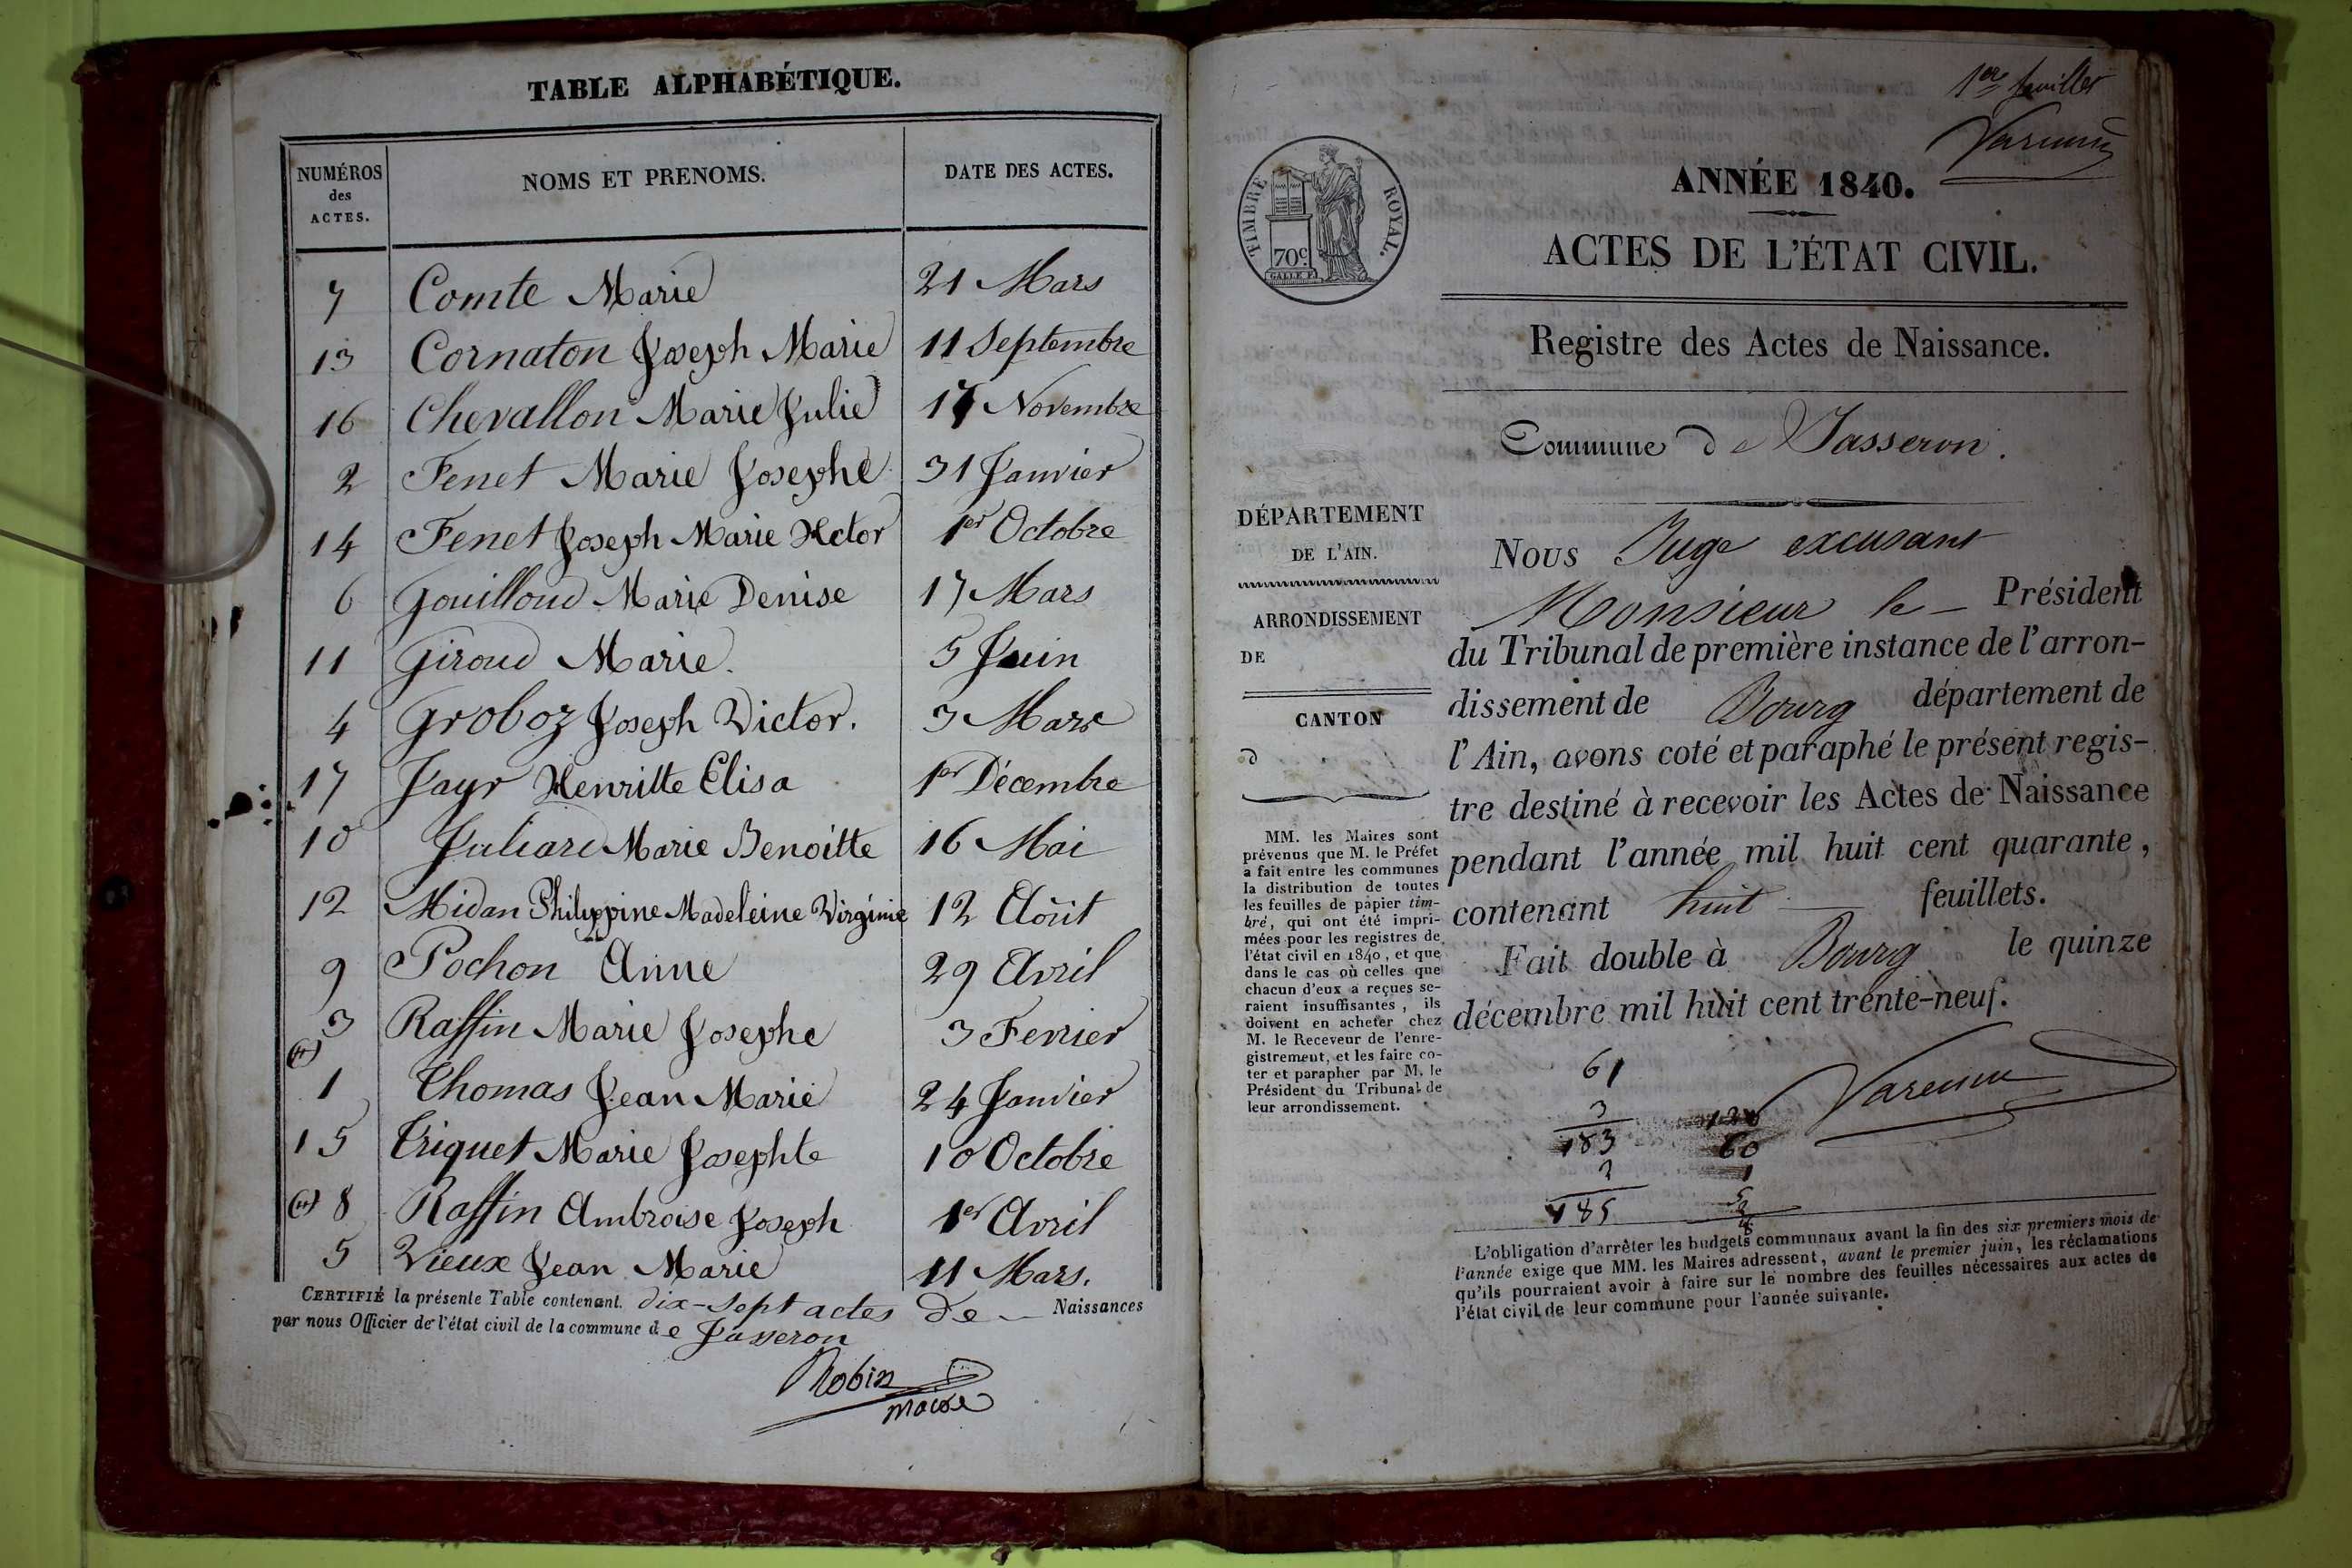 TABLE ALPHABÉTIQUE.
NUMÉROS des ACTES. NOMS ET PRENOMS. DATE DES ACTES.
7 Comte Marie 21 Mars
13 Cornaton Joseph Marie 11 Septembre
16 Chevallon Marie Julie 17 Novembre
2 Fenet Marie Josephe 31 Janvier
14 Fenet Joseph Marie Hctor 1er Octobre
6 Gouilloud Marie Denise 17 Mars
11 Giroud Marie. 5 Juin
4 Groboz Joseph Victor. 3 Mars
17 Jayr Henritte Elisa 1er Décembre
10 Juliard Marie Benoitte 16 Mai
12 Midan Philippine Madeleine Virginie 12 Août
9 Pochon Anne 29 Avril
3 Raffin Marie Josephe 3 Fevrier
1 Thomas Jean Marie 24 Janvier
15 Triquet Marie Josephte 10 Octobre
8 Raffin Ambroise Joseph 1er Avril
5 Vieux Jean Marie 11 Mars.
CERTIFIÉ la présente Table contenant dix-sept actes de Naissances
par nous Officier de l'état civil de la commune de Jasseron
Robin
maire
1er feuillet
TIMBRE ROYAL.
70c.
GALLE F.
ANNÉE 1840.
ACTES DE L'ÉTAT CIVIL.
Registre des Actes de Naissance.
Commune de Jasseron.
DÉPARTEMENT
DE L'AIN.
ARRONDISSEMENT
DE
CANTON
d
MM. les Maires sont
prévenus que M. le Préfet
a fait entre les communes
la distribution de toutes
les feuilles de papier tim-
bré, qui ont été impri-
mées pour les registres de
l'état civil en 1840, et que
dans le cas où celles que
chacun d'eux a reçues se-
raient insuffisantes, ils
doivent en acheter chez
M. le Receveur de l'enre-
gistrement, et les faire co-
ter et parapher par M. le
Président du Tribunal de
leur arrondissement.
Nous Juge excusant
Monsieur le Président
du Tribunal de première instance de l'arron-
dissement de Bourg département de
l'Ain, avons coté et paraphé le présent regis-
tre destiné à recevoir les Actes de Naissance
pendant l'année mil huit cent quarante,
contenant huit feuillets.
Fait double à Bourg le quinze
décembre mil huit cent trente-neuf.
61
3
183
2
185
60
1
L'obligation d'arrêter les budgets communaux avant la fin des six premiers mois de
l'année exige que MM. les Maires adressent, avant le premier juin, les réclamations
qu'ils pourraient avoir à faire sur le nombre des feuilles nécessaires aux actes de
l'état civil de leur commune pour l'année suivante.